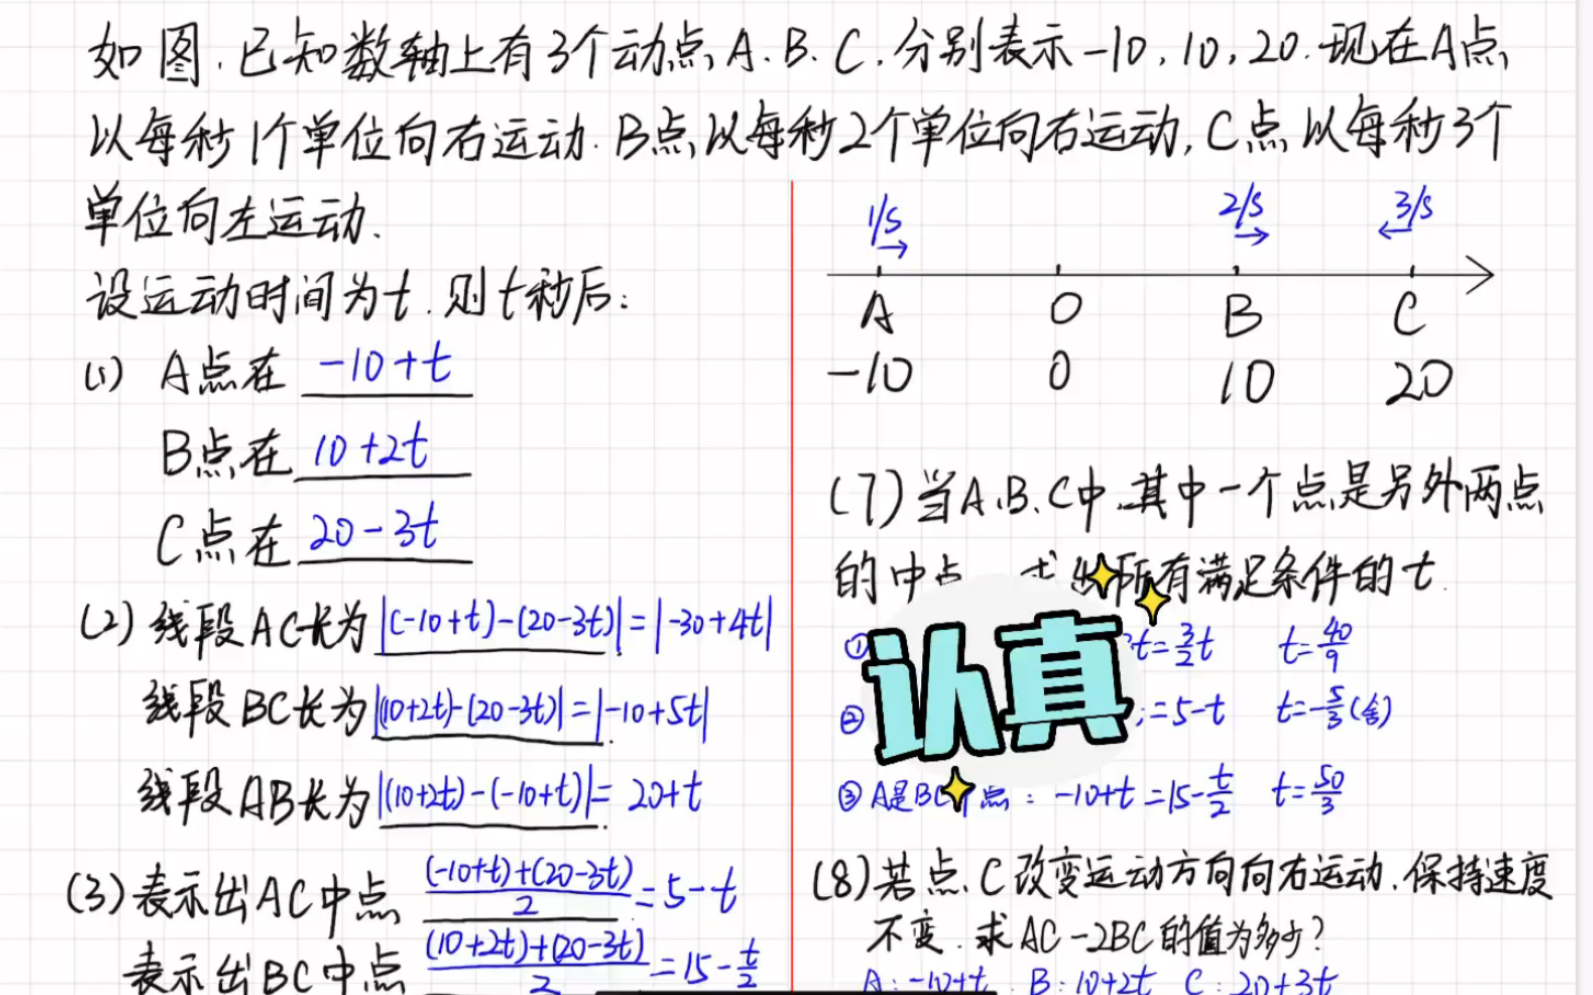 如图.已知数轴上有3个动点A.B.C.分别表示-10,10,20.现在A点
以每秒1个单位向右运动.B点以每秒2个单位向右运动,C点以每秒3个
单位向左运动.
设运动时间为t.则t秒后:
(1) A点在 -10+t
B点在 10+2t
C点在 20-3t
(2) 线段AC长为 |(-10+t)-(20-3t)|=|-30+4t|
线段BC长为 |(10+2t)-(20-3t)|=|-10+5t|
线段AB长为 |(10+2t)-(-10+t)|= 20+t
(3) 表示出AC中点 \frac{(-10+t)+(20-3t)}{2}=5-t
表示出BC中点 \frac{(10+2t)+(20-3t)}{2}=15-\frac{t}{2}
1/s 2/s 3/s
A O B C
-10 0 10 20
(7) 当A.B.C中.其中一个点是另外两点
的中点 求出所有满足条件的t.
① t=\frac{3}{2}t t=\frac{40}{9}
② =5-t t=-\frac{5}{3}(舍)
③ A是BC中点: -10+t=15-\frac{t}{2} t=\frac{50}{3}
认真
(8) 若点C改变运动方向向右运动.保持速度
不变.求AC-2BC的值为多少?
A:-10+t B:10+2t C:20+3t